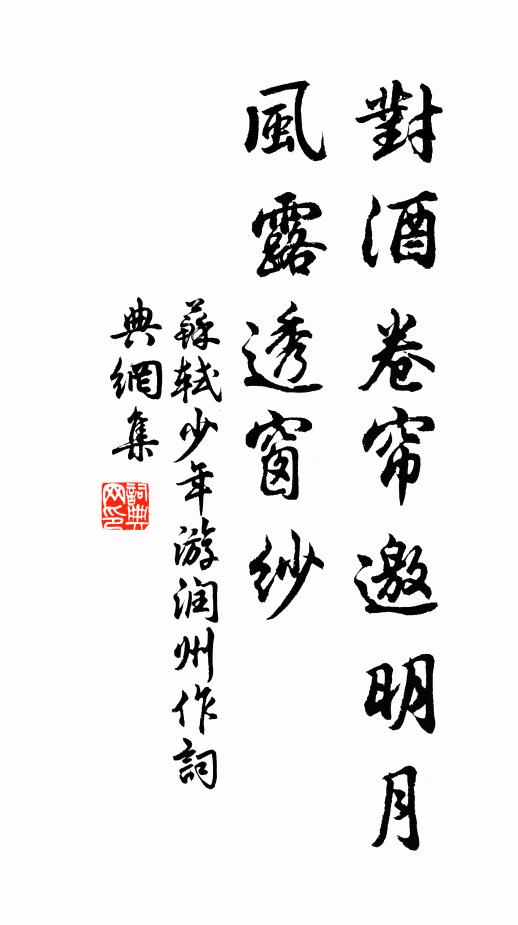 對酒卷帘邀明月
風露透窗紗
蘇軾少年游润州作詞
典網集
詞典网印